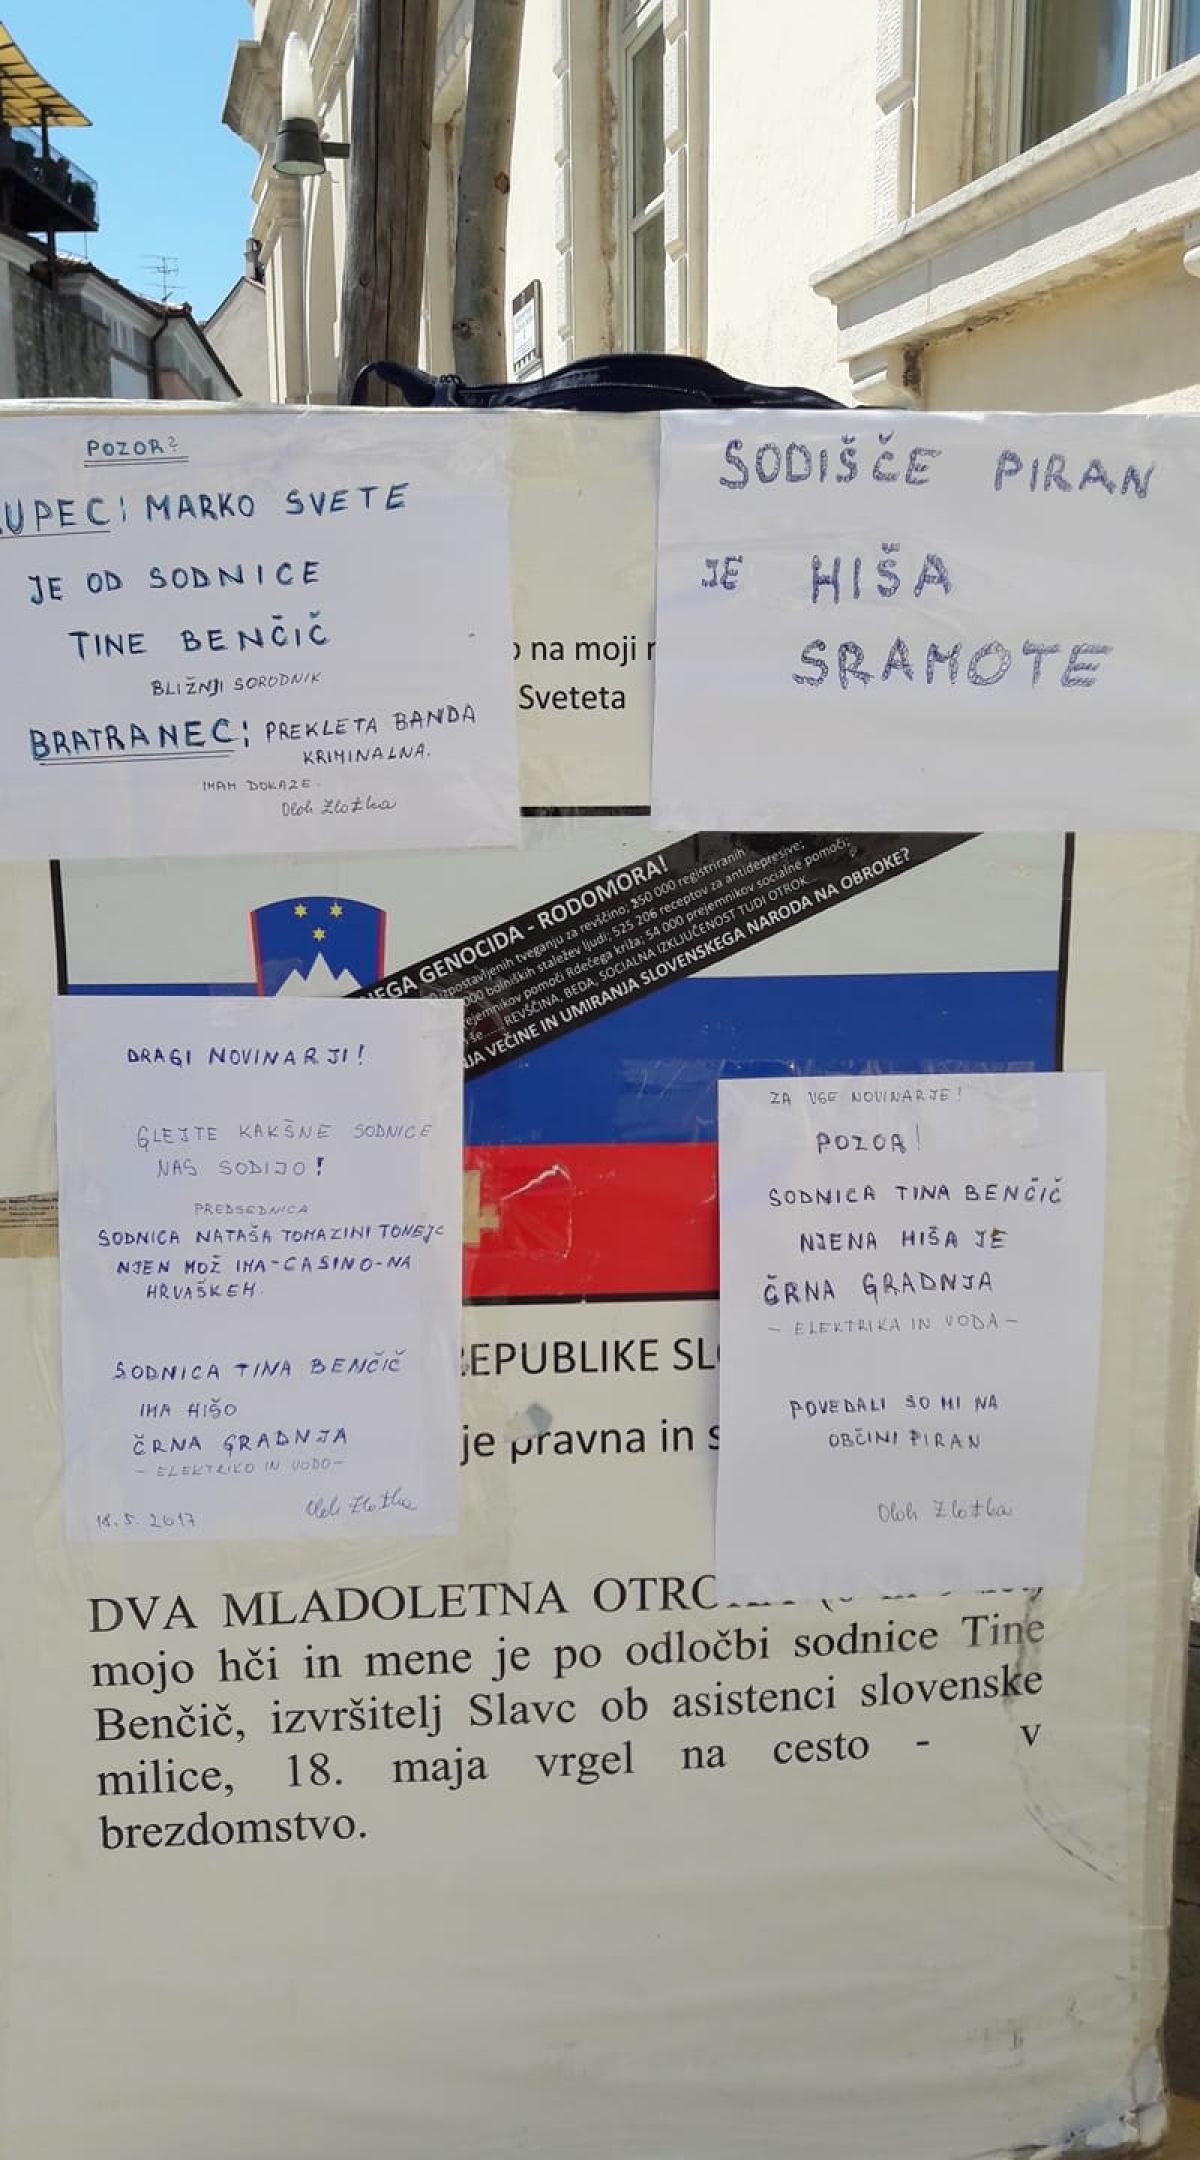 POZOR?
KUPEC: MARKO SVETE
JE OD SODNICE
TINE BENČIČ
BLIŽNJI SORODNIK
BRATRANEC: PREKLETA BANDA
KRIMINALNA.
IMAM DOKAZE.
SODIŠČE PIRAN
JE HIŠA
SRAMOTE
na moji
Sveteta
GENOCIDA - RODOMORA!
izpostavljenih tveganju za revščino; 250 000 registriranih
000 bolniških staležev ljudi; 525 206 receptov za antidepresive;
prejemnikov pomoči Rdečega križa; 54 000 prejemnikov socialne pomoči;
še..... REVŠČINA, BEDA, SOCIALNA IZKLJUČENOST TUDI OTROK...
VEČINE IN UMIRANJA SLOVENSKEGA NARODA NA OBROKE?
DRAGI NOVINARJI!
GLEJTE KAKŠNE SODNICE
NAS SODIJO!
PREDSEDNICA
SODNICA NATAŠA TOMAZINI TONEJC
NJEN MOŽ IMA-CASINO-NA
HRVAŠKEM.
SODNICA TINA BENČIČ
IMA HIŠO
ČRNA GRADNJA
- ELEKTRIKO IN VODO-
18.5.2017
ZA VSE NOVINARJE!
POZOR!
SODNICA TINA BENČIČ
NJENA HIŠA JE
ČRNA GRADNJA
- ELEKTRIKA IN VODA -
POVEDALI SO MI NA
OBČINI PIRAN
REPUBLIKE
je pravna in
DVA MLADOLETNA
mojo hči in mene je po odločbi sodnice Tine
Benčič, izvršitelj Slavc ob asistenci slovenske
milice, 18. maja vrgel na cesto - v
brezdomstvo.